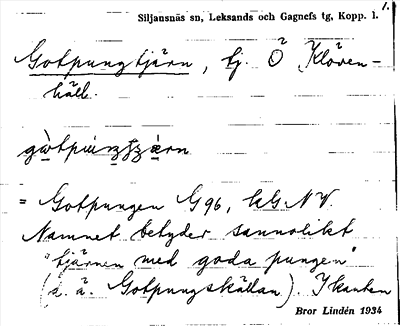 1.
Siljansnäs sn, Leksands och Gagnefs tg, Kopp. l.
Gotpungtjärn, tj. Ö Klöven-
häll.
= Gotpungen G 96, kG. N V.
Namnet betyder sannolikt
"tjärnen med goda pungen"
(d. ä. Gotpungskällan). I kanten
Bror Lindén 1934